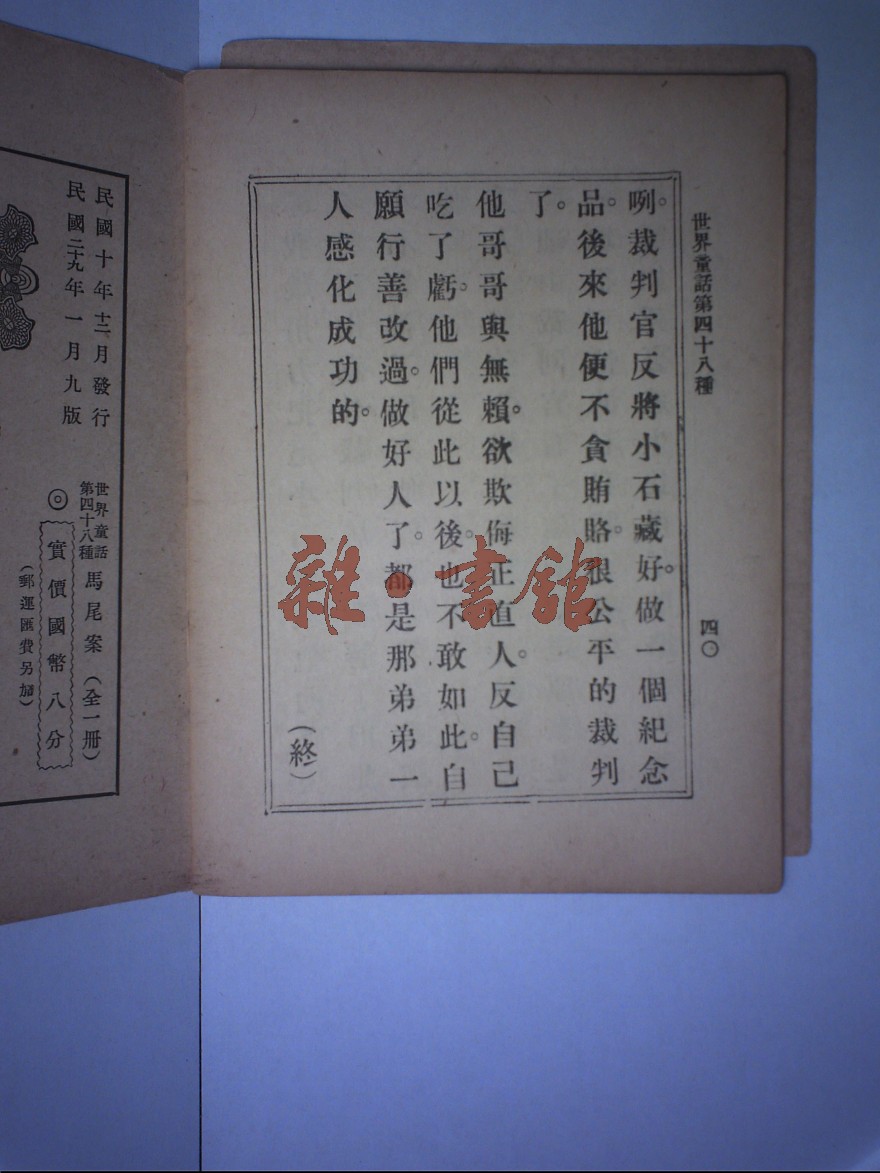 世界童話第四十八種
四〇
咧。裁判官反將小石藏好。做一個紀念
品。後來他便不貪賄賂。很公平的裁判
了。
他哥哥與無賴。欲欺侮正直人。反自己
吃了虧。他們從此以後。也不敢如此。自
願行善改過。做好人了。都是那弟弟一
人感化成功的。
(終)
民國十年十二月發行
民國二十九年一月九版
世界童話
第四十八種
馬尾案(全一冊)
◎實價國幣八分
(郵運匯費另加)
雜·書館